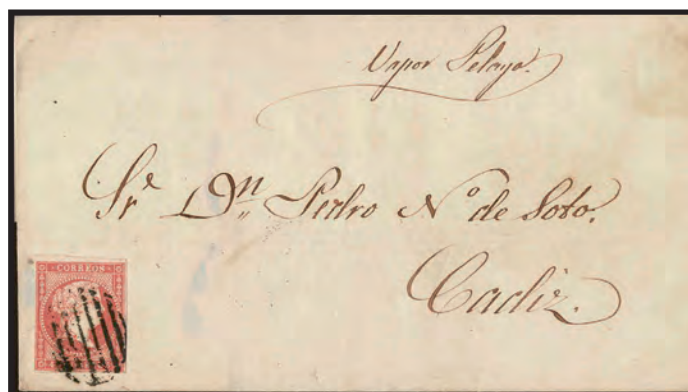 Vapor Pelayo.
Sr. Dn. Pedro Nº de Soto.
Cadiz.
CORREOS